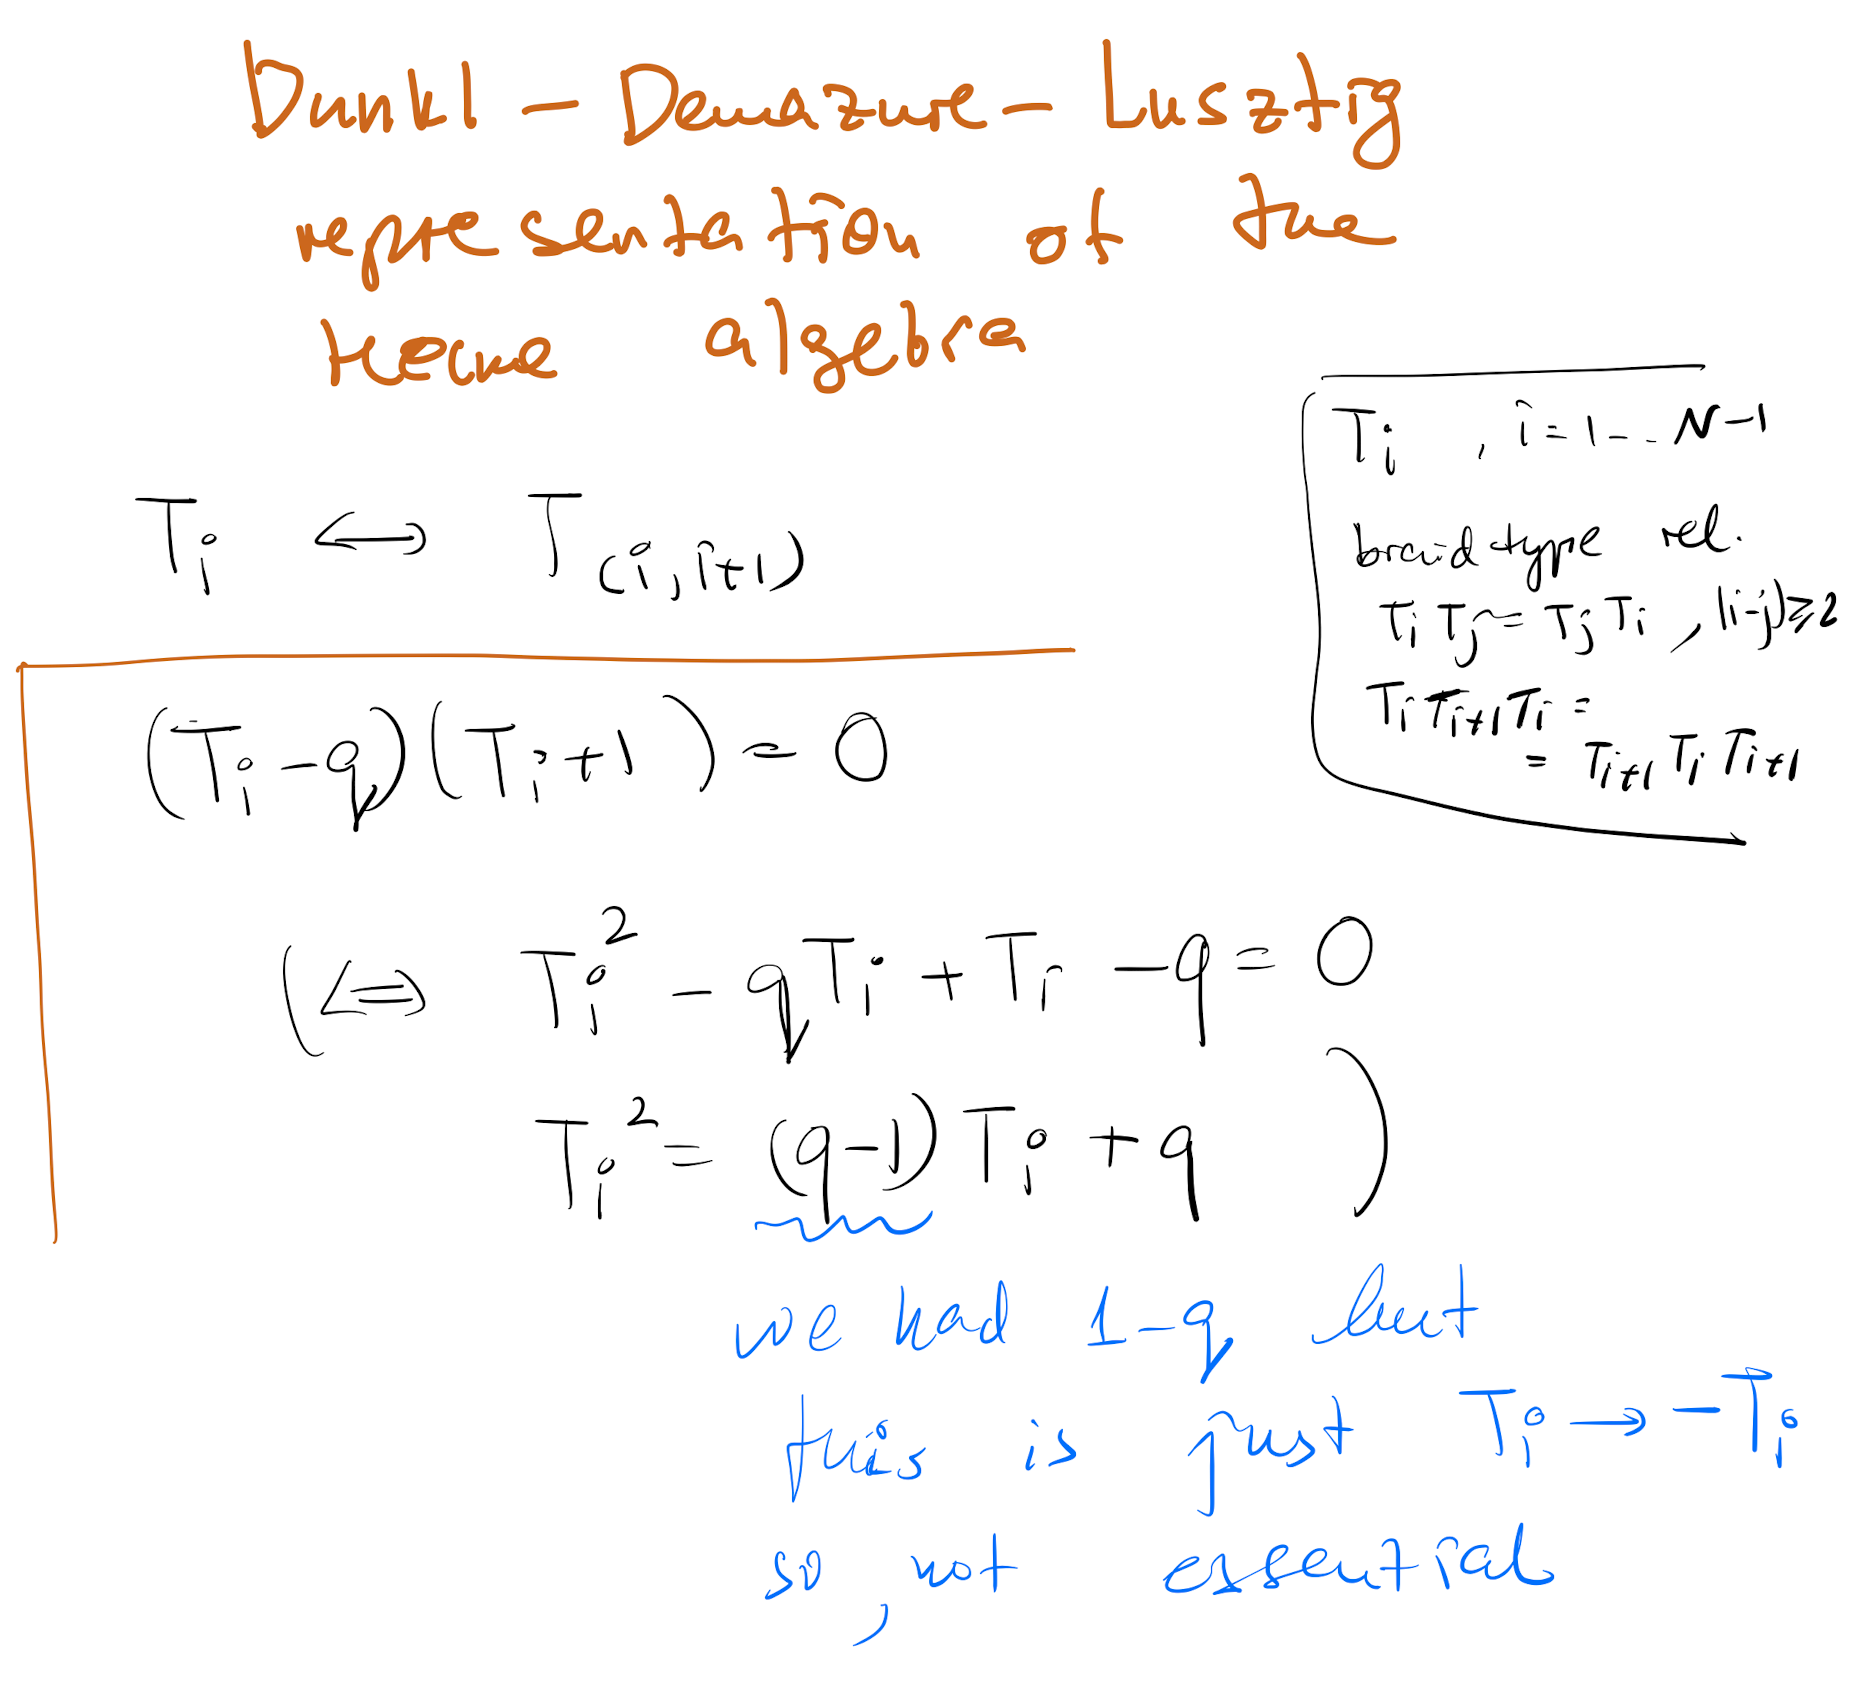 Dunkl – Demazure – Lusztig
representation of the
Hecke algebra
T_i ⟷ T_(i,i+1)
T_i , i=1--.N-1
braid type rel.
T_i T_j = T_j T_i , |i-j|⩾2
T_i T_{i+1} T_i =
= T_{i+1} T_i T_{i+1}
(T_i - q)(T_i + 1) = 0
(⟺ T_i^2 - qT_i + T_i - q = 0
T_i^2 = (q-1) T_i + q )
we had 1-q but
this is just T_i → -T_i
so, not essential